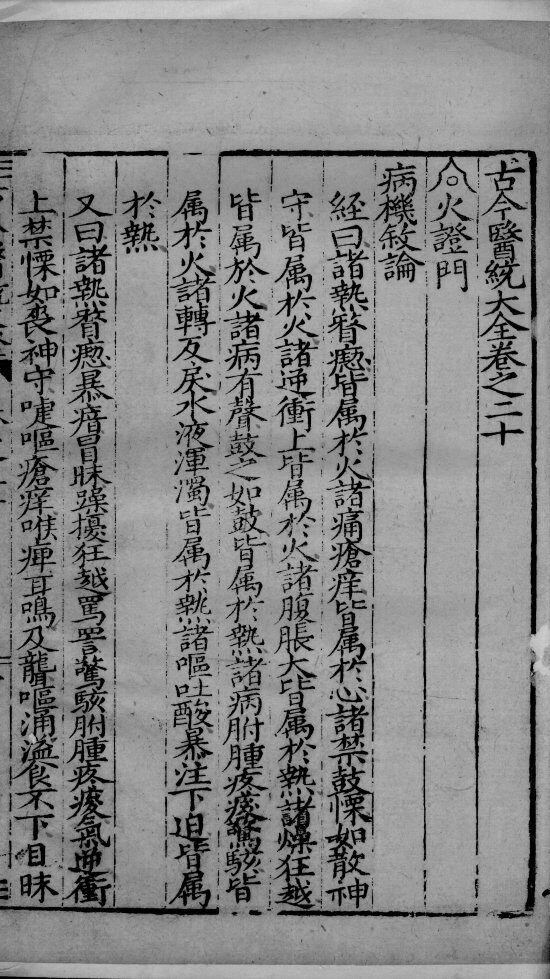 古今醫統大全卷之二十
火證門
病機敘論
經曰諸熱瞀瘛皆属於火諸痛瘡痒皆属於心諸禁鼓慄如散神
守皆属於火諸逆衝上皆属於火諸腹脹大皆属於熱諸燥狂越
皆属於火諸病有聲鼓之如鼓皆属於熱諸病胕腫疼痠驚駭皆
属於火諸轉反戾水液渾濁皆属於熱諸嘔吐酸暴注下迫皆属
於熱
又曰諸熱瞀瘛暴瘖冒昧躁擾狂越罵詈驚駭胕腫疼痠氣逆衝
上禁慄如喪神守嚏嘔瘡痒喉痺耳鳴及聾嘔涌溢食不下目昧